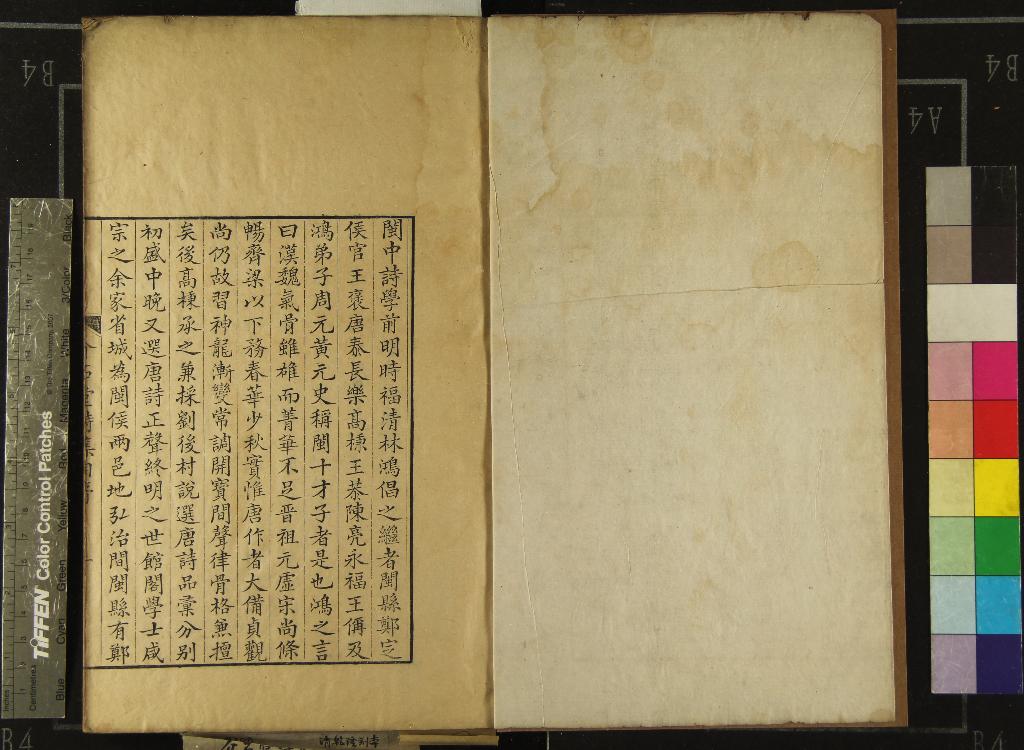 閩中詩學前明時福清林鴻倡之繼者閩縣鄭定
侯官王褒唐泰長樂髙棅王恭陳亮永福王偁及
鴻弟子周元黃元史稱閩十才子者是也鴻之言
曰漢魏氣骨雖雄而菁華不足晋祖元虛宋尚條
暢齊梁以下務春華少秋實惟唐作者大備貞觀
尚仍故習神龍漸變常調開寳間聲律骨格無擅
矣後髙棅承之兼採劉後村說選唐詩品彙分别
初盛中晚又選唐詩正聲終明之世館閣學士咸
宗之余家省城為閩侯兩邑地弘治間閩縣有鄭
TIFFEN Color Control Patches
Blue
Cyan
Green
Yellow
Red
Magenta
White
3/Color
Black
Inches
Centimetres
B4
B4
A4
B4
B4